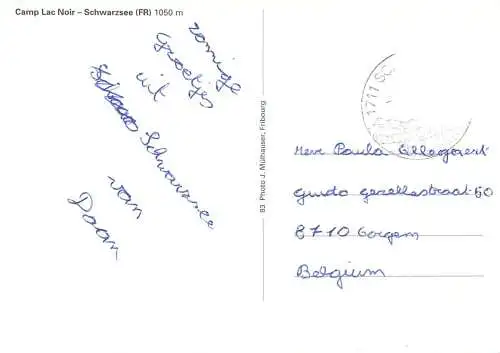 Camp Lac Noir – Schwarzsee (FR) 1050 m
zonnige
Groetjes
uit
Schwarzsee
van
Daan
83 Photo J. Mülhauser, Fribourg
1711 SC
Mevr Paula
Guido gezellestraat 60
8710 Gorgem
Belgium